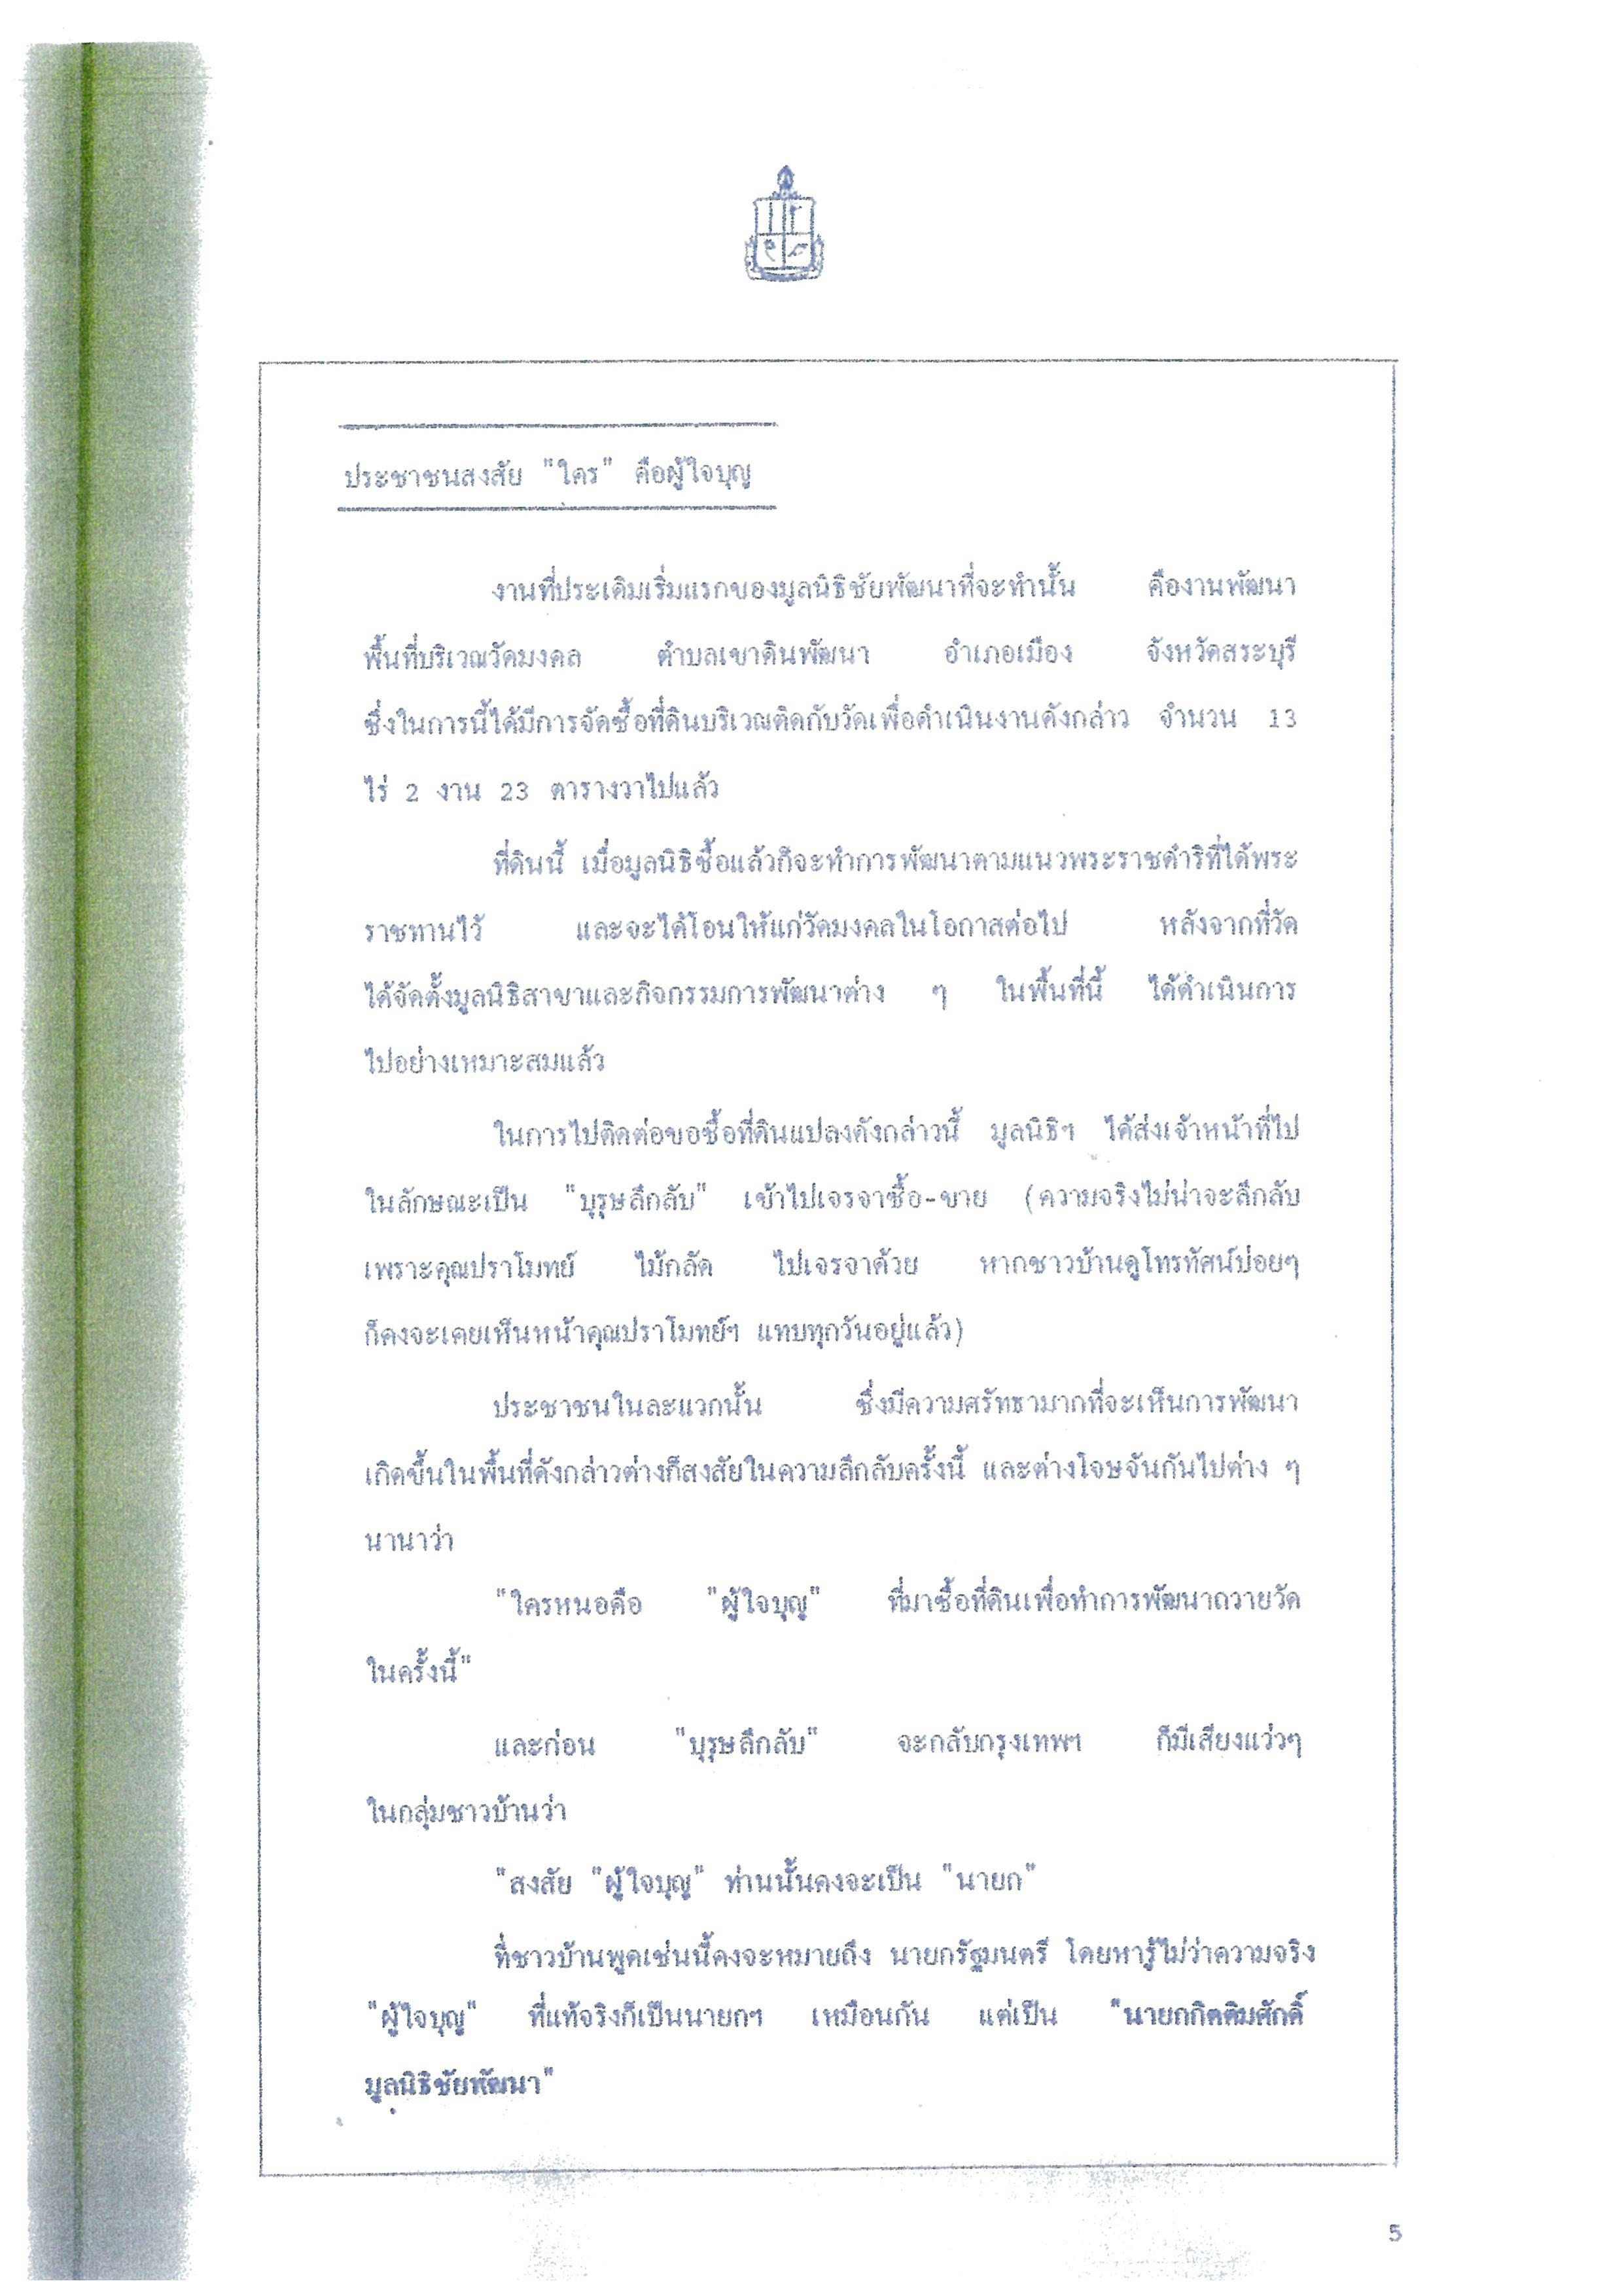 ประชาชนสงสัย "ใคร" คือผู้ใจบุญ
งานที่ประเดิมเริ่มแรกของมูลนิธิชัยพัฒนาที่จะทำนั้น คืองานพัฒนา
พื้นที่บริเวณวัดมงคล ตำบลเขาดินพัฒนา อำเภอเมือง จังหวัดสระบุรี
ซึ่งในการนี้ได้มีการจัดซื้อที่ดินบริเวณติดกับวัดเพื่อดำเนินงานดังกล่าว จำนวน 13
ไร่ 2 งาน 23 ตารางวาไปแล้ว
ที่ดินนี้ เมื่อมูลนิธิซื้อแล้วก็จะทำการพัฒนาตามแนวพระราชดำริที่ได้พระ
ราชทานไว้ และจะได้โอนให้แก่วัดมงคลในโอกาสต่อไป หลังจากที่วัด
ได้จัดตั้งมูลนิธิสาขาและกิจกรรมการพัฒนาต่าง ๆ ในพื้นที่นี้ ได้ดำเนินการ
ไปอย่างเหมาะสมแล้ว
ในการไปติดต่อขอซื้อที่ดินแปลงดังกล่าวนี้ มูลนิธิฯ ได้ส่งเจ้าหน้าที่ไป
ในลักษณะเป็น "บุรุษลึกลับ" เข้าไปเจรจาซื้อ-ขาย (ความจริงไม่น่าจะลึกลับ
เพราะคุณปราโมทย์ ไม้กลัด ไปเจรจาด้วย หากชาวบ้านดูโทรทัศน์บ่อยๆ
ก็คงจะเคยเห็นหน้าคุณปราโมทย์ฯ แทบทุกวันอยู่แล้ว)
ประชาชนในละแวกนั้น ซึ่งมีความศรัทธามากที่จะเห็นการพัฒนา
เกิดขึ้นในพื้นที่ดังกล่าวต่างก็สงสัยในความลึกลับครั้งนี้ และต่างโจษจันกันไปต่าง ๆ
นานาว่า
"ใครหนอคือ "ผู้ใจบุญ" ที่มาซื้อที่ดินเพื่อทำการพัฒนาถวายวัด
ในครั้งนี้"
และก่อน "บุรุษลึกลับ" จะกลับกรุงเทพฯ ก็มีเสียงแว่วๆ
ในกลุ่มชาวบ้านว่า
"สงสัย "ผู้ใจบุญ" ท่านนั้นคงจะเป็น "นายก"
ที่ชาวบ้านพูดเช่นนี้คงจะหมายถึง นายกรัฐมนตรี โดยหารู้ไม่ว่าความจริง
"ผู้ใจบุญ" ที่แท้จริงก็เป็นนายกฯ เหมือนกัน แต่เป็น "นายกกิตติมศักดิ์
มูลนิธิชัยพัฒนา"
5